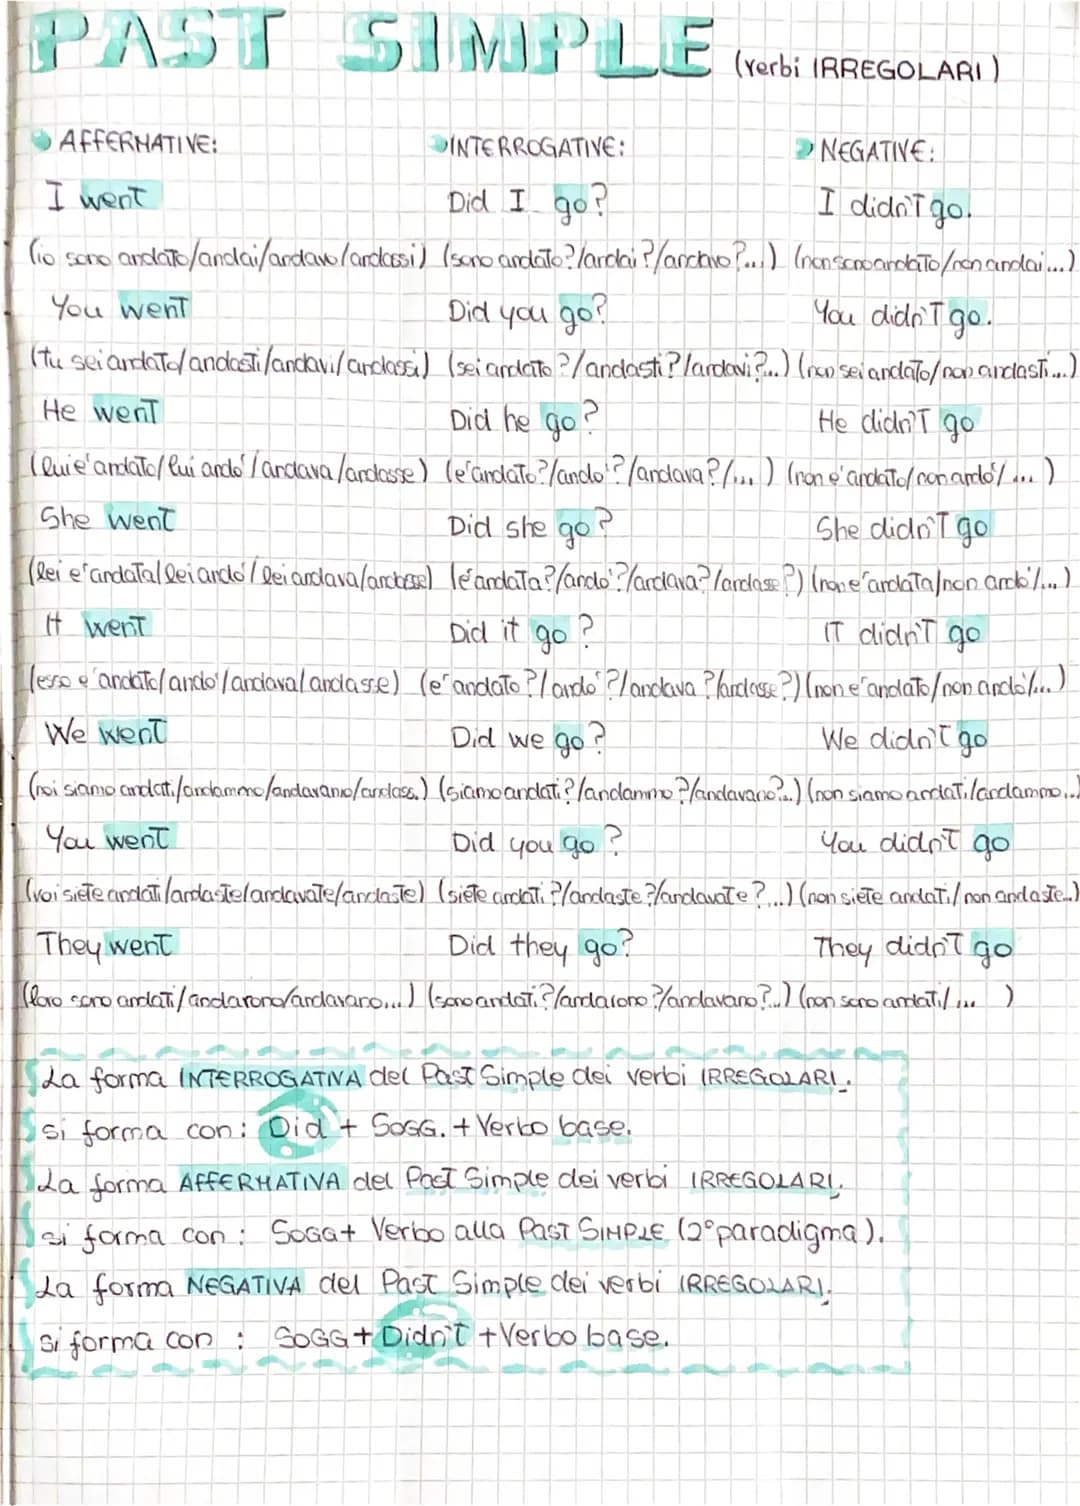 PAST SIMPLE (verbi IRREGOLARI)
AFFERMATIVE: INTERROGATIVE: NEGATIVE:
I went Did I go? I didn't go.
(io sono andato/andai/andavo/andassi) (sono andato?/andai?/andavo?...) (non sono andato/non andai...)
You went Did you go? You didn't go.
(tu sei andato/andasti/andavi/andassi) (sei andato?/andasti?/andavi?...) (non sei andato/non andasti...)
He went Did he go? He didn't go
(lui e' andato/lui ando'/andava/andasse) (e' andato?/ando'?/andava?/...) (non e' andato/non ando'/...)
She went Did she go? She didn't go
(lei e' andata/lei ando'/lei andava/andasse) (e' andata?/ando'?/andava?/andasse?) (non e' andata/non ando'/...)
It went Did it go? IT didn't go
(esso e' andato/ando'/andava/andasse) (e' andato?/ando'?/andava?/andasse?) (non e' andato/non ando'/...)
We went Did we go? We didn't go
(noi siamo andati/andammo/andavamo/andass.) (siamo andati?/andammo?/andavano?...) (non siamo andati/andammo...)
You went Did you go? You didn't go
(voi siete andati/andaste/andavate/andaste) (siete andati?/andaste?/andavate?...) (non siete andati/non andaste...)
They went Did they go? They didn't go
(loro sono andati/andarono/andavano...) (sono andati?/andarono?/andavano?...) (non sono andati/...)
La forma INTERROGATIVA del Past Simple dei verbi IRREGOLARI.
si forma con: Did + SOGG. + Verbo base.
La forma AFFERMATIVA del Past Simple dei verbi IRREGOLARI.
si forma con: SOGG + Verbo alla PAST SIMPLE (2° paradigma).
La forma NEGATIVA del Past Simple dei verbi IRREGOLARI.
si forma con : SOGG + Didn't + Verbo base.